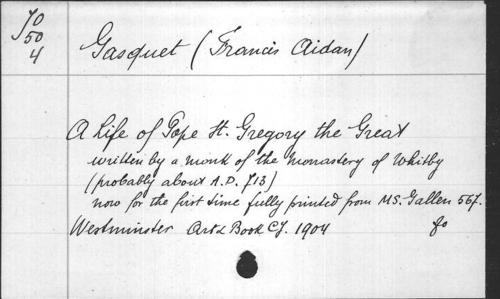 70
50
4
Gasquet (Francis Aidan)
A Life of Pope St. Gregory the Great
written by a monk of the monastery of Whitby
(probably about A.D. 713)
now for the first time fully printed from MS. Gallen 567.
Westminster Art & Book Cy. 1904
fo